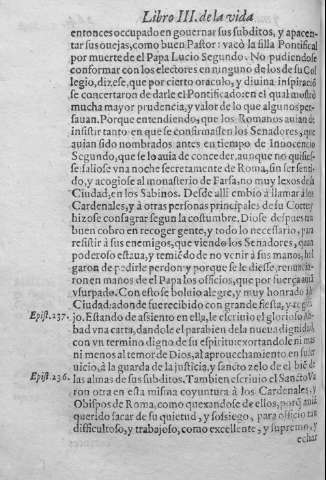 Libro III. de la vida
entonces occupado en gouernar sus subditos, y apacen-
tar sus ouejas, como buen Pastor: vacò la silla Pontifical
por muerte de el Papa Lucio Segundo. No pudiendose
conformar con los electores en ninguno de los de su Col
legio, dizese, que por cierto oraculo, y diuina inspiració
se concertaron de darle el Pontificado: en el qual mostró
mucha mayor prudencia, y valor de lo que algunos pe-
sauan. Porque entendiendo, que los Romanos auian de
insistir tanto en que se confirmassen los Senadores, que
auian sido nombrados antes en tiempo de Innocencio
Segundo, que se lo auia de conceder, aunque no quisies-
se: saliose vna noche secretamente de Roma, sin ser senti-
do, y acogiose al monasterio de Farfa, no muy lexos de la
Ciudad, en los Sabinos. Desde alli embio à llamar à los
Cardenales, y à otras personas principales de su Corte, y
hizose consagrar segun la costumbre. Diose despues tan
buen cobro en recoger gente, y todo lo necessario, para
resistir à sus enemigos, que viendo los Senadores, quan
poderoso estaua, y temiédo de no venir à sus manos, hol
garon de pedirle perdon y porque se le diesse, renuncia-
ron en manos de el Papa los officios, que por fuerça auiá
vsurpado. Con esto se boluio alegre, y muy honrado à la
Ciudad: adonde fue recibido con grande fiesta, y rego-
Epist. 237. jo. Estando de assiento en ella, le escriuio el glorioso Ab-
bad vna carta, dandole el parabien de la nueua dignidad,
con vn termino digno de su espiritu: exortandole ni mas
ni menos al temor de Dios, al aprouechamiento en su ser
uicio, à la guarda de la justicia, y sancto zelo de el bié de
Epist. 236. las almas de sus subditos. Tambien escriuio el Sancto Va
ron otra en esta misma coyuntura à los Cardenales, y
Obispos de Roma, como quexandose de ellos, porq auiá
querido sacar de su quietud, y sossiego, para officio tan
difficultoso, y trabajoso, como excellente, y supremo, y
echar